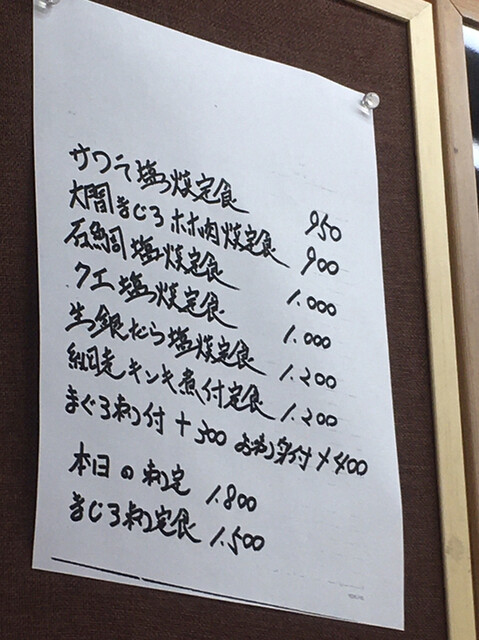 サワラ塩焼定食 950
大間まぐろホホ肉焼定食 900
石鯛塩焼定食 1.000
クエ塩焼定食 1.000
生銀だら塩焼定食 1.200
網走キンキ煮付定食 1.200
まぐろ刺付 +300 お刺身付+400
本日の刺定 1.800
まぐろ刺定食 1.500